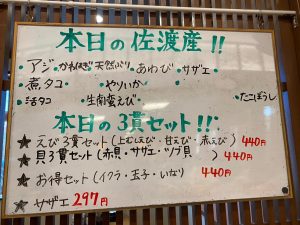 本日の佐渡産!!
・アジ・かわはぎ・天然ぶり・あわび・サザエ
・煮タコ・やりいか・
・活タコ・生南蛮えび・たこぼうし
本日の3貫セット!!
★えび3貫セット(上むしえび・甘えび・赤えび) 440円
★貝3貫セット(赤貝・サザエ・ツブ貝) 440円
★お得セット(イクラ・玉子・いなり) 440円
★サザエ 297円